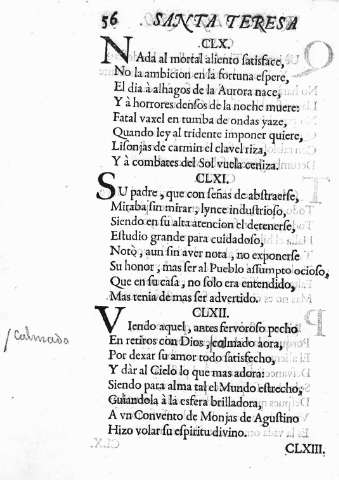 56 SANTA TERESA
CLX.
NAda al mortal aliento satisface,
No la ambicion en la fortuna espere,
El dia à alhagos de la Aurora nace,
Y à horrores densos de la noche muere:
Fatal vaxel en tumba de ondas yaze,
Quando ley al tridente imponer quiere,
Lisonjas de carmin el clavel riza,
Y à combates del Sol vuela ceniza.
CLXI.
SU padre, que con señas de abstraerse,
Miraba sin mirar, lynce industrioso,
Siendo en su alta atencion el detenerse,
Estudio grande para cuidadoso,
Notò, aun sin aver nota, no exponerse
Su honor, mas ser al Pueblo assumpto ocioso,
Que en su casa, no solo era entendido,
Mas tenia de mas ser advertido.
CLXII.
VIendo aquel, antes fervoroso pecho
/calmado
En retiros con Dios, calmado aora,
Por dexar su amor todo satisfecho,
Y dàr al Cielo lo que mas adora:
Siendo para alma tal el Mundo estrecho,
Guiandola à la esfera brilladora,
A vn Convento de Monjas de Agustino
Hizo volar su espiritu divino.
CLXIII.